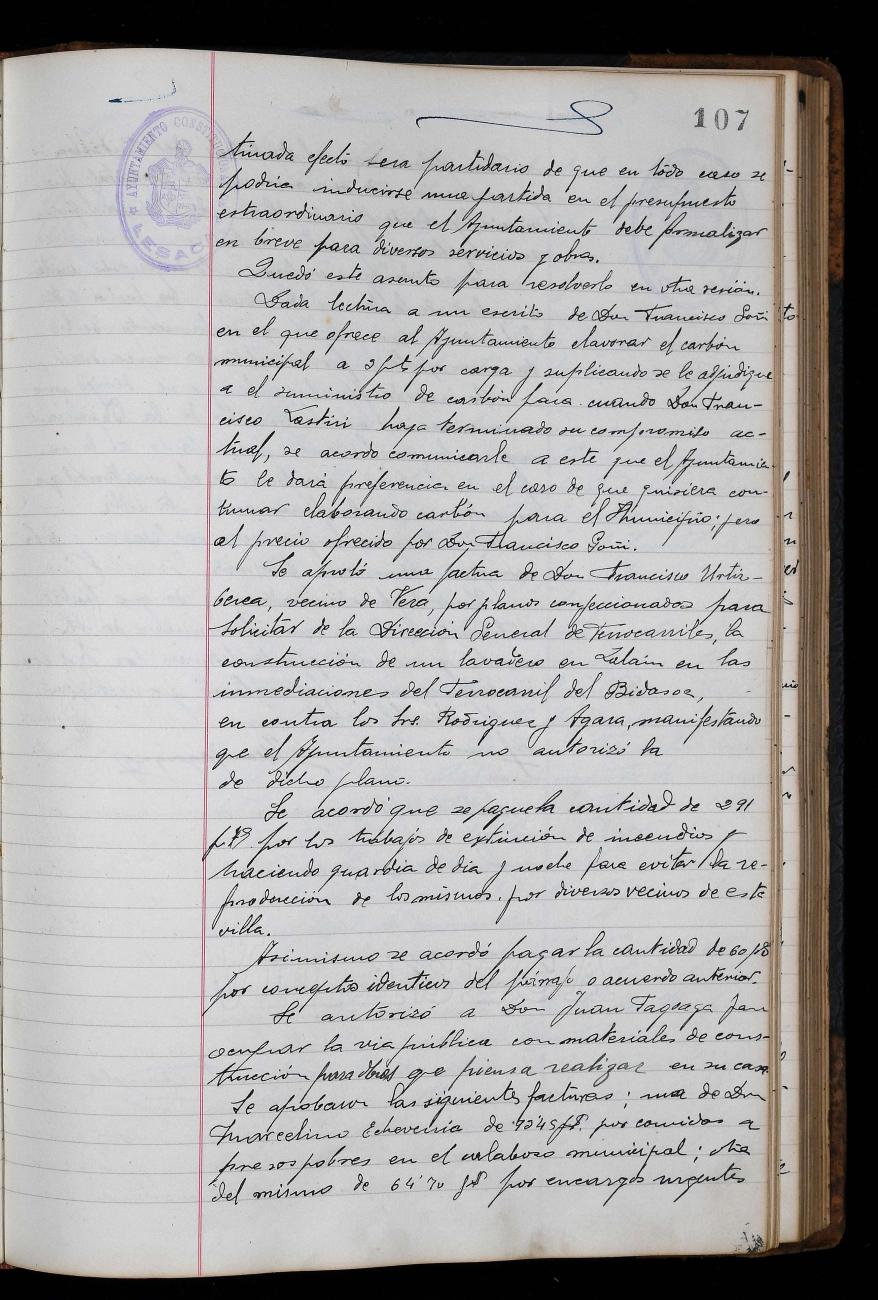 107
AYUNTAMIENTO CONSTITUCIONAL
LESACA
tinada efectó sera partidario de que en todo caso se
podria inducirse una partida en el presupuesto
estraordinario que el Ayuntamiento debe formalizar
en breve para diversos servicios y obras.
Quedó este asunto para resolverlo en otra sesión.
Dada lectura a un escrito de Don Francisco Goñi
en el que ofrece al Ayuntamiento elavorar el carbón
municipal a 2 pts por carga y suplicando se le adjudique
a el suministro de carbón para cuando Don Fran-
cisco Lastiri haya terminado su compromiso ac-
tual, se acordo comunicarle a este que el Ayuntamien-
to le dará preferencia en el caso de que quisiera con-
tinuar elaborando carbón para el Municipio; pero
al precio ofrecido por Don Francisco Goñi.
Se aprobó una factura de Don Francisco Urtiz-
berea, vecino de Vera, por planos confeccionados para
solicitar de la Dirección General de Ferrocarriles, la
construcción de un lavadero en Zalain en las
inmediaciones del Ferrocarril del Bidasoa,
en contra los Srs. Rodriguez y Agara, manifestando
que el Ayuntamiento no autorizó la
de dicho plano.
Se acordó que se pague la cantidad de 291
pts por los trabajos de extinción de incendios y
haciendo guardia de dia y noche para evitar la re-
producción de los mismos por diversos vecinos de esta
villa.
Asimismo se acordó pagar la cantidad de 60 pts
por conceptos identicos del párrafo o acuerdo anterior.
Se autorizó a Don Juan Tagoaga para
ocupar la via pública con materiales de cons-
trucción para obras que piensa realizar en su casa
Se aprobaron las siguientes facturas; una de Don
Marcelino Echeverria de pts. por comidas a
presos pobres en el calabozo municipal; otra
del mismo de 64'70 pts por encargos urgentes